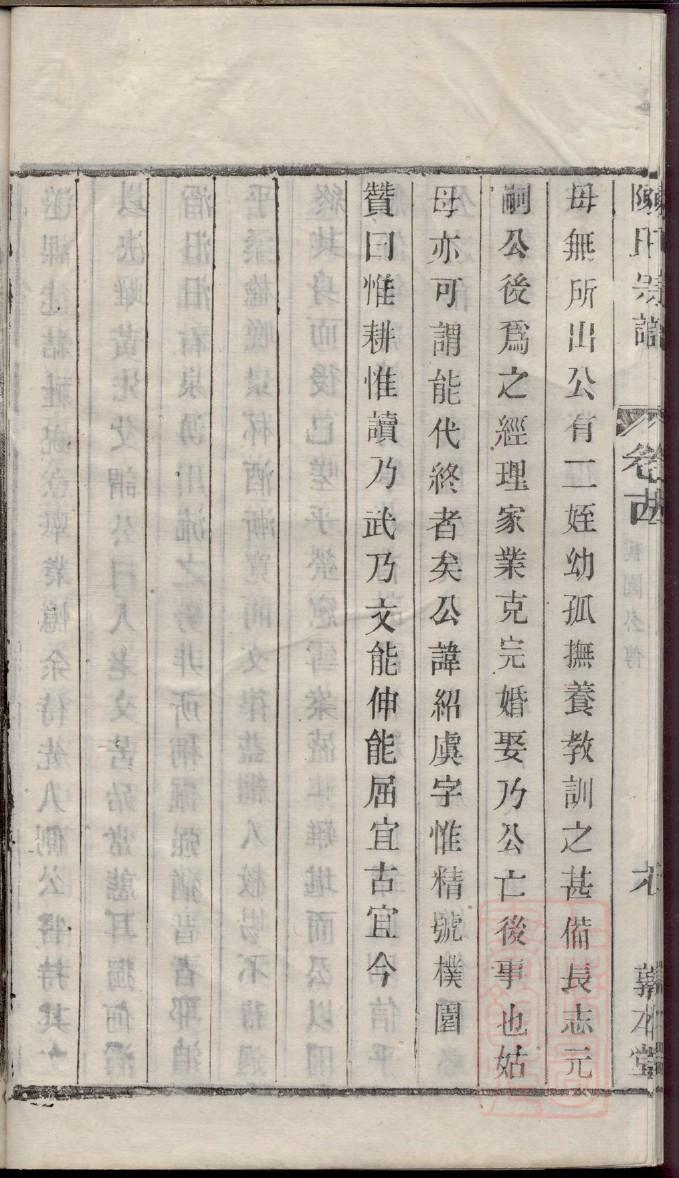 陳氏宗譜
卷古
樸園公傳
敦本堂
母無所出公有二姪幼孤撫養教訓之甚備長志元
嗣公後爲之經理家業克完婚娶乃公亡後事也姑
母亦可謂能代終者矣公諱紹虞字惟精號樸園
贊曰惟耕惟讀乃武乃文能伸能屈宜古宜今